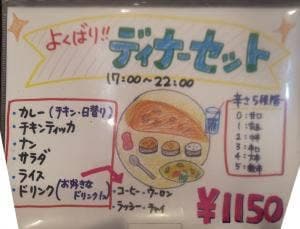 よくばり!!
ディナーセット
17:00～22:00
・カレー(チキン・日替り)
・チキンティッカ
・ナン
・サラダ
・ライス
・ドリンク(お好きなドリンク1つ)
・コーヒー・ウーロン
・ラッシー・チャイ
辛さ5段階
0:甘口
1:
2:中辛
3:辛口
4:大辛
5:激辛
¥1150